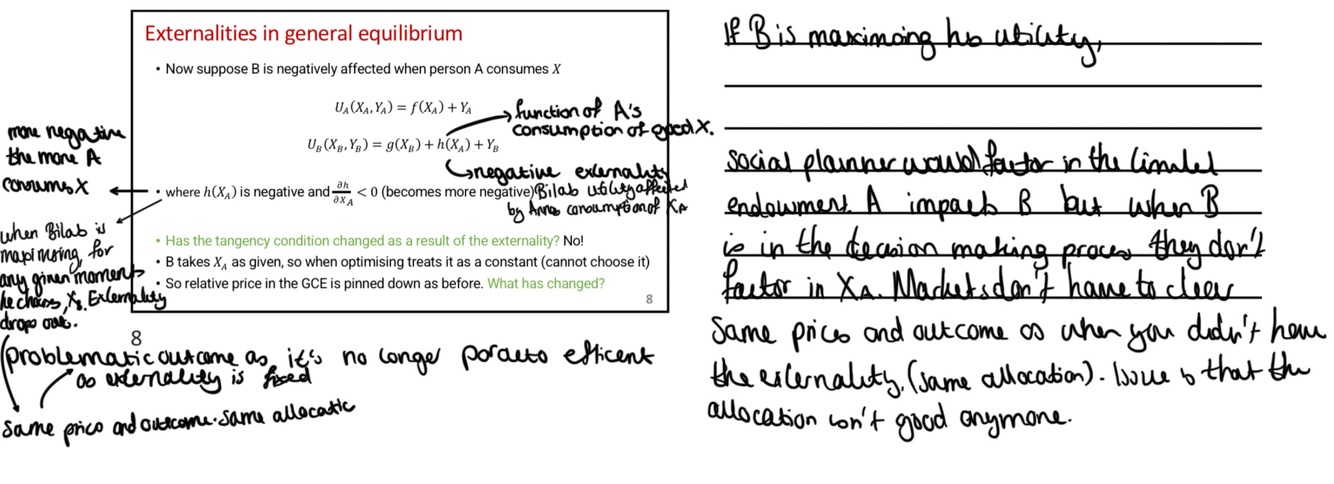 Externalities in general equilibrium
• Now suppose B is negatively affected when person A consumes X
U_A(X_A, Y_A) = f(X_A) + Y_A
function of A's
consumption of good X.
U_B(X_B, Y_B) = g(X_B) + h(X_A) + Y_B
negative externality
more negative
the more A
consumes X
• where h(X_A) is negative and ∂h/∂X_A < 0 (becomes more negative)
Bilab utility affected
by Anna consumption of X_A
when Bilab is
maximising, for
any given moment
he chooses, X_B. Externality
drops out.
• Has the tangency condition changed as a result of the externality? No!
• B takes X_A as given, so when optimising treats it as a constant (cannot choose it)
• So relative price in the GCE is pinned down as before. What has changed?
8
8
problematic outcome as it's no longer poraeto efficent
as externality is fixed
same price and outcome. same allocatic
If B is maximising his utility,
social planner would factor in the limited
endowment. A impacts B but when B
is in the decision making process they don't
factor in X_A. Markets don't have to clear
Same prices and outcome as when you didn't have
the externality. (same allocation). Issue is that the
allocation isn't good anymore.